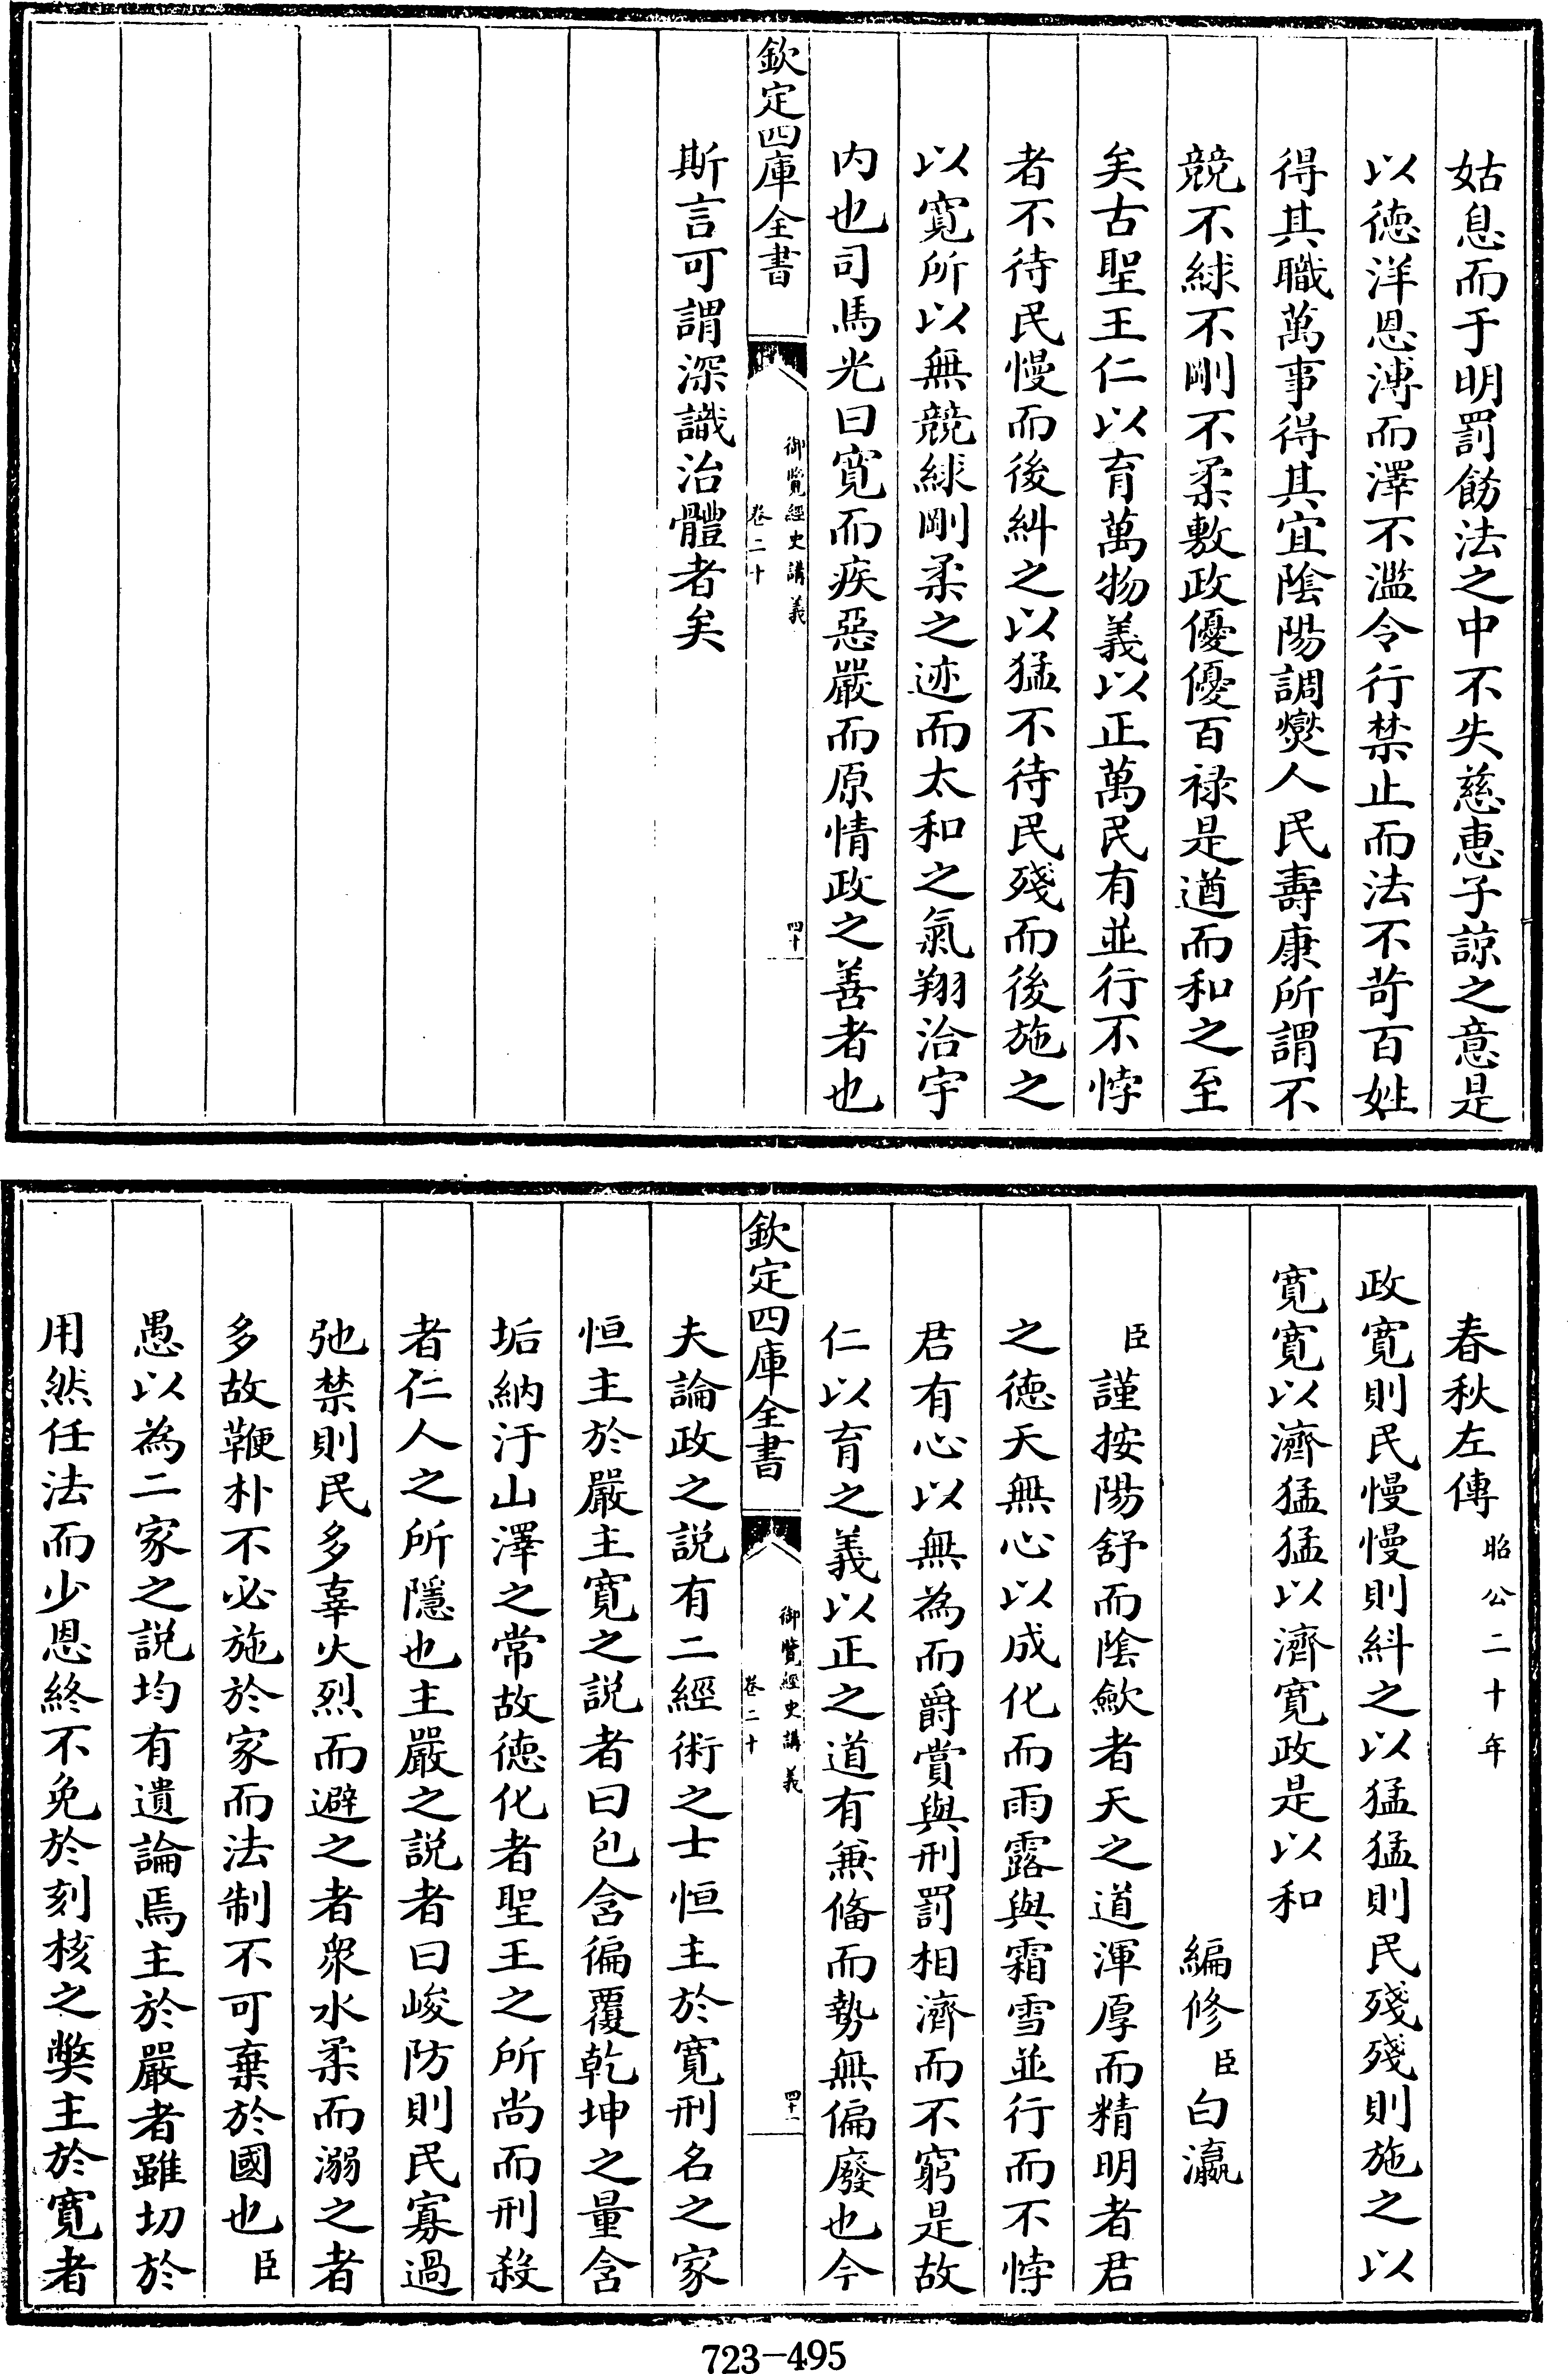 姑息而于明罰飭法之中不失慈惠子諒之意是
以德洋恩溥而澤不濫令行禁止而法不苛百姓
得其職萬事得其宜陰陽調爕人民壽康所謂不
競不絿不剛不柔敷政優優百祿是遒而和之至
矣古聖王仁以育萬物義以正萬民有並行不悖
者不待民慢而後糾之以猛不待民殘而後施之
以寛所以無競絿剛柔之迹而太和之氣翔洽宇
内也司馬光曰寛而疾惡嚴而原情政之善者也
欽定四庫全書
御覽經史講義
卷二十
四十
斯言可謂深識治體者矣
春秋左傳昭公二十年
政寛則民慢慢則糾之以猛猛則民殘殘則施之以
寛寛以濟猛猛以濟寛政是以和
編修臣白瀛
臣謹按陽舒而陰歛者天之道渾厚而精明者君
之德天無心以成化而雨露與霜雪並行而不悖
君有心以無為而爵賞與刑罰相濟而不窮是故
仁以育之義以正之道有兼偹而勢無偏廢也今
欽定四庫全書
御覽經史講義
卷二十
四十一
夫論政之説有二經術之士恒主於寛刑名之家
恒主於嚴主寛之説者曰包含徧覆乾坤之量含
垢納汙山澤之常故德化者聖王之所尚而刑殺
者仁人之所隱也主嚴之説者曰峻防則民寡過
弛禁則民多辜火烈而避之者衆水柔而溺之者
多故鞭朴不必施於家而法制不可棄於國也臣
愚以為二家之説均有遺論焉主於嚴者雖切於
用然任法而少恩終不免於刻核之獘主於寛者
723-495